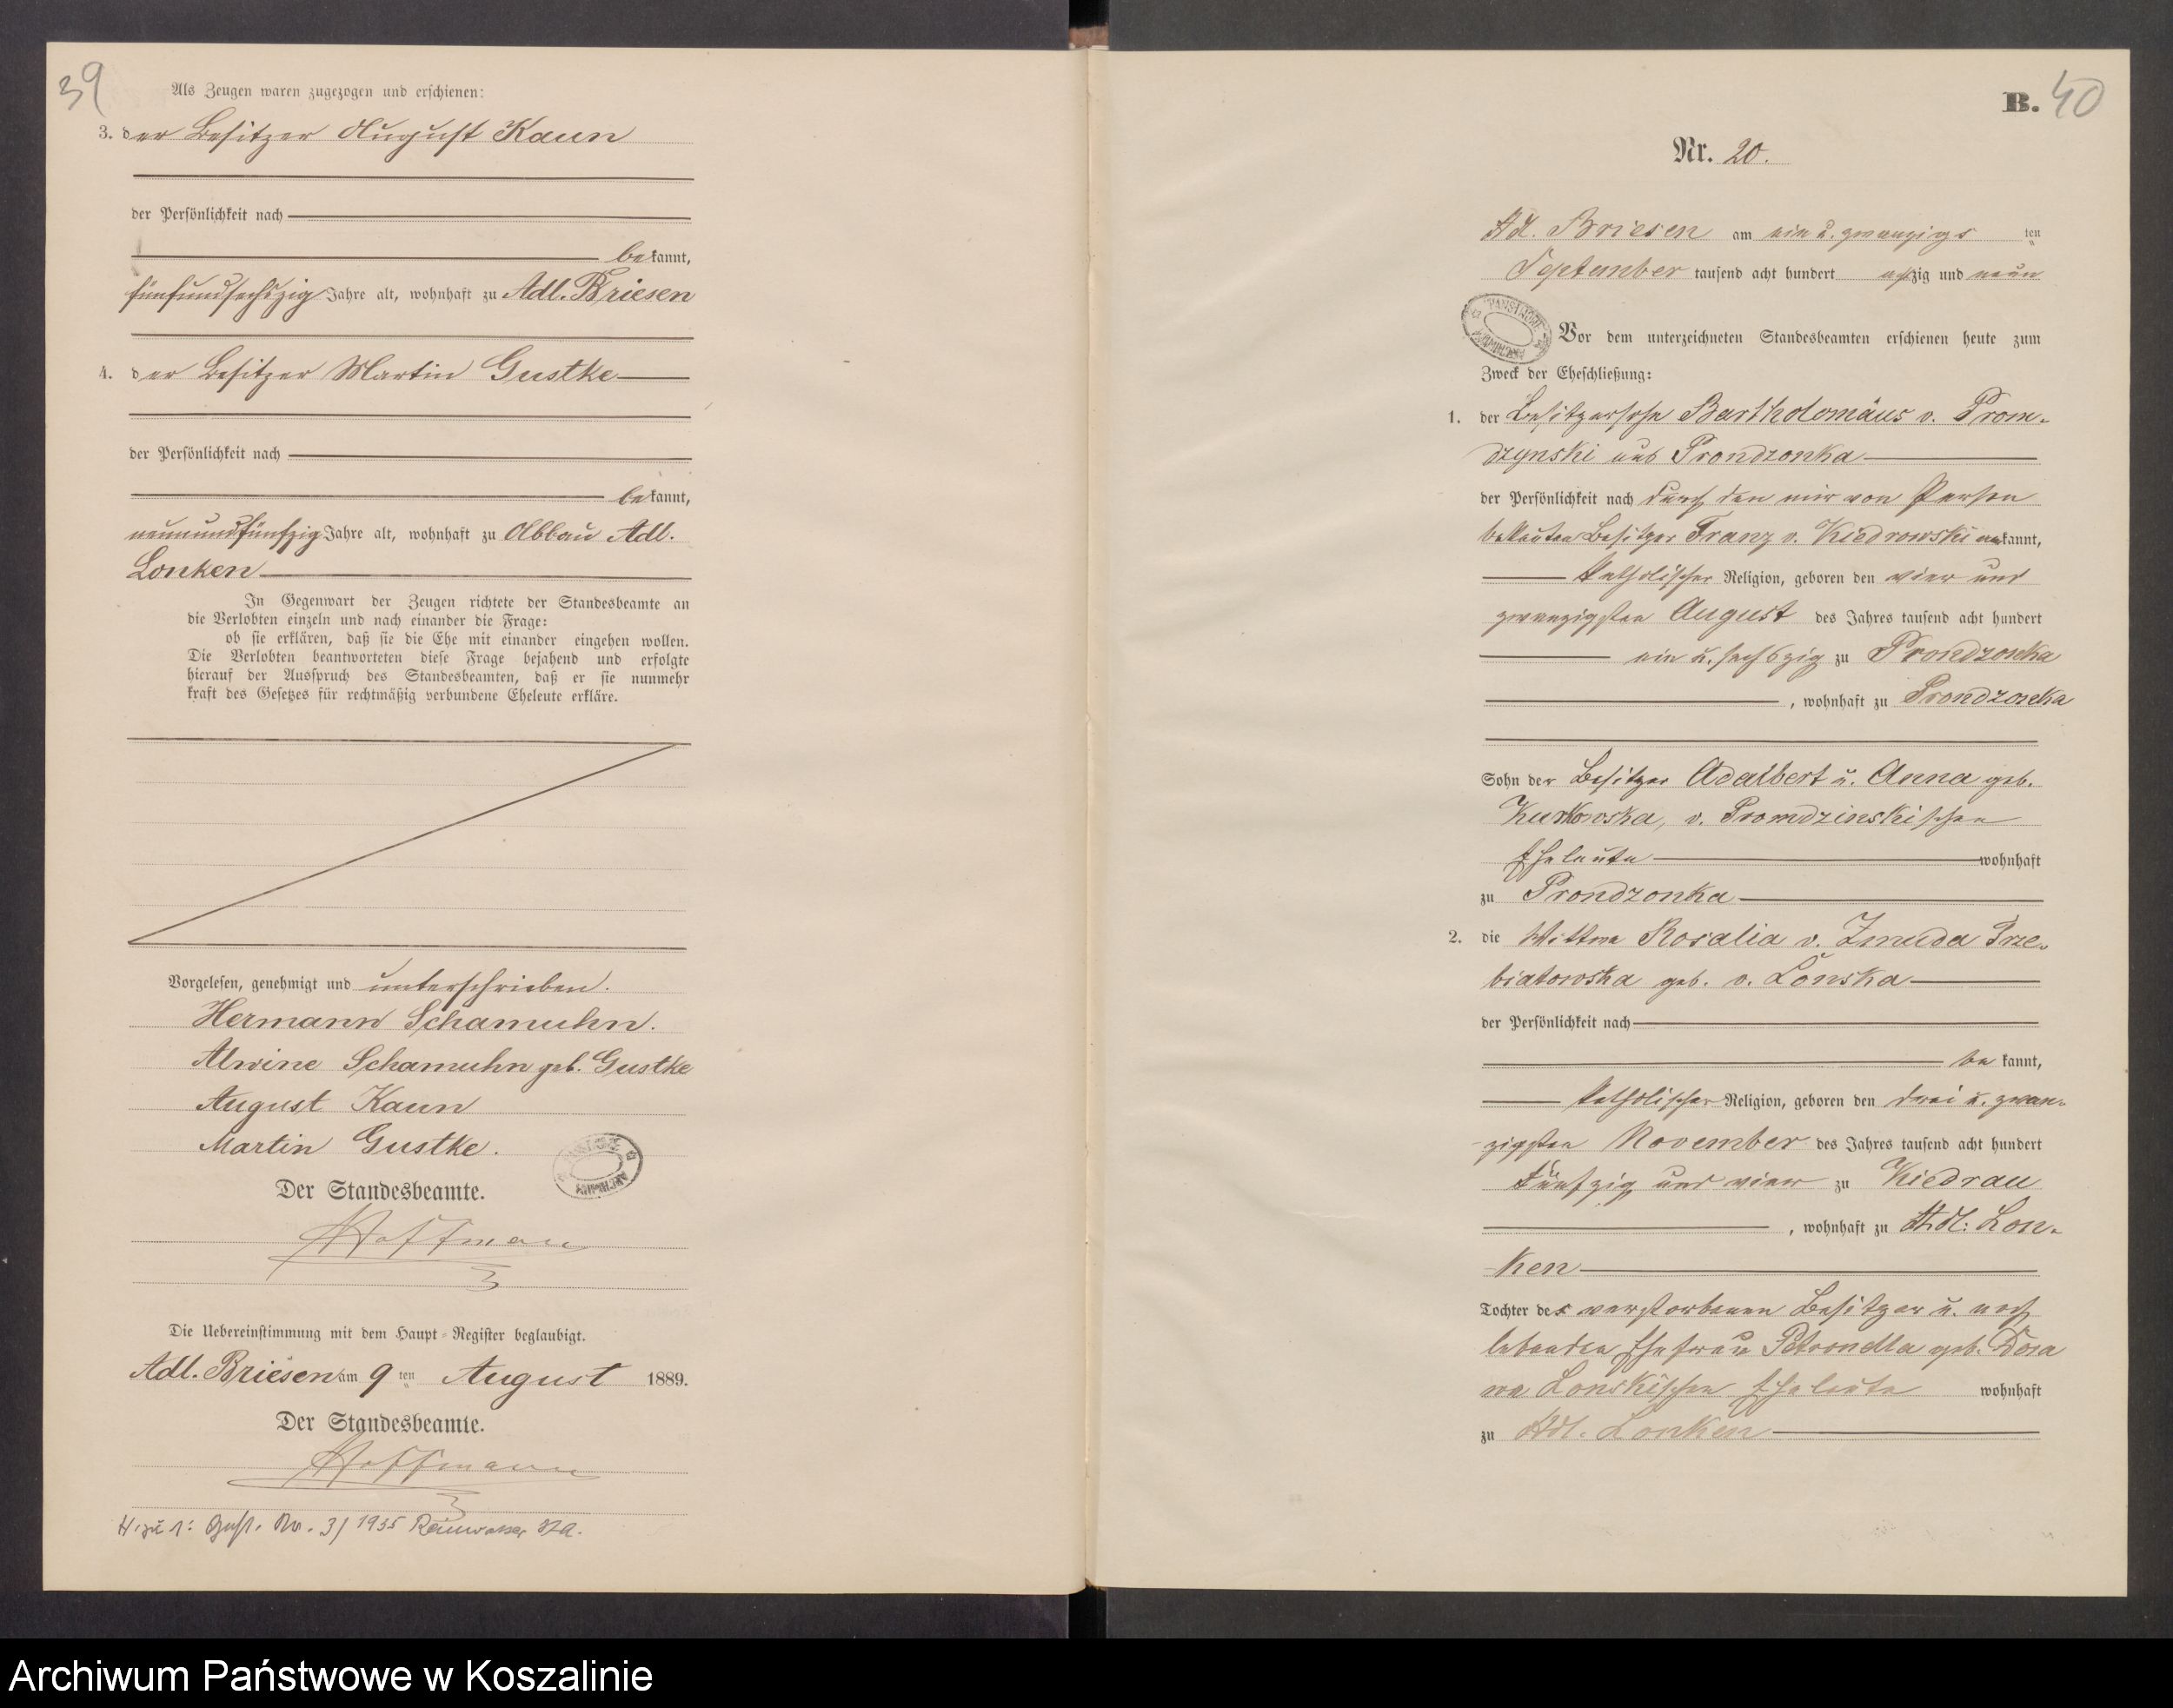 39
Als Zeugen waren zugezogen und erschienen:
3. der Besitzer August Kaun
der Persönlichkeit nach
bekannt,
fünfundsechszig Jahre alt, wohnhaft zu Adl. Briesen
4. der Besitzer Martin Gustke
der Persönlichkeit nach
bekannt,
neunundfünfzig Jahre alt, wohnhaft zu Abbau Adl.
Lonken
In Gegenwart der Zeugen richtete der Standesbeamte an
die Verlobten einzeln und nach einander die Frage:
ob sie erklären, daß sie die Ehe mit einander eingehen wollen.
Die Verlobten beantworteten diese Frage bejahend und erfolgte
hierauf der Ausspruch des Standesbeamten, daß er sie nunmehr
kraft des Gesetzes für rechtmäßig verbundene Eheleute erkläre.
Vorgelesen, genehmigt und unterschrieben.
Hermann Schamuhn.
Alwine Schamuhn geb. Gustke
August Kaun
Martin Gustke.
Der Standesbeamte.
Hoffmann
Die Uebereinstimmung mit dem Haupt-Register beglaubigt.
Adl. Briesen am 9ten August 1889.
Der Standesbeamte.
Hoffmann
H. zu 1: Nr. 3/1935
B. 40
Nr. 20.
Adl. Briesen am ein u. zwanzigs ten
September tausend acht hundert achtzig und neun
Vor dem unterzeichneten Standesbeamten erschienen heute zum
Zweck der Eheschließung:
1. der Besitzersohn Bartholomäus v. Prom-
dzynski aus Prondzonka
der Persönlichkeit nach durch den mir von Person
bekannten Besitzer Franz v. Kiedrowski erkannt,
katholischer Religion, geboren den vier und
zwanzigsten August des Jahres tausend acht hundert
ein u. sechszig zu Prondzonka
, wohnhaft zu Prondzonka
Sohn der Besitzer Adalbert u. Anna geb.
Kurkowska, v. Promdzinskischen
Eheleute wohnhaft
zu Prondzonka
2. die Wittwe Rosalia v. Zmuda Trze-
biatowska geb. v. Lonska
der Persönlichkeit nach
bekannt,
katholischer Religion, geboren den drei u. zwan-
zigsten November des Jahres tausend acht hundert
fünfzig und vier zu Kiedrau
, wohnhaft zu Adl: Lon-
ken
Tochter des verstorbenen Besitzer u. noch
lebenden Ehefrau Petronella geb.
Lonskischen Eheleute wohnhaft
zu Adl. Lonken
Archiwum Państwowe w Koszalinie